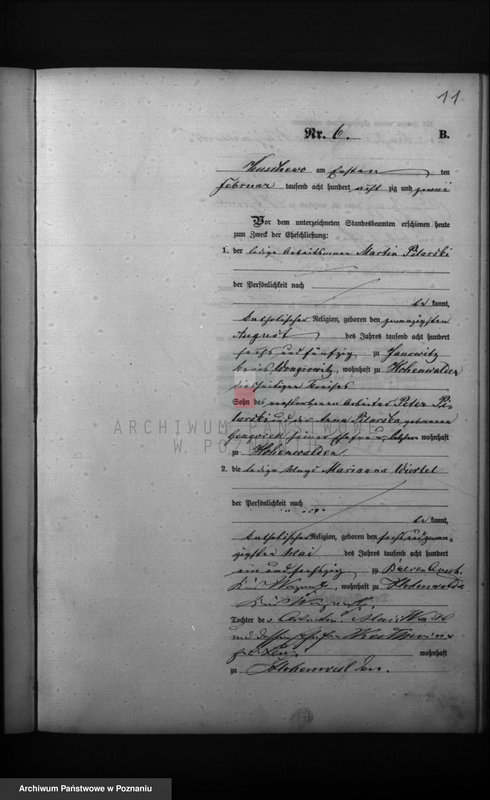 11
Nr. 6. B.
am Ersten den
Februar tausend acht hundert acht zig und zwei
Vor dem unterzeichneten Standesbeamten erschienen heute
zum Zweck der Eheschließung:
1. der ledige Arbeitsmann Martin Pilarski
der Persönlichkeit nach
be kannt,
katholischer Religion, geboren den zwanzigsten
August des Jahres tausend acht hundert
sechs und fünfzig zu Janowitz
Kreis Wongrowitz, wohnhaft zu Hohenwalden
diesseitigen Kreises
Sohn des verstorbenen Arbeiters Peter Pi-
larski und der Anna Pilarska geborenen
seiner Ehefrau, letztere wohnhaft
zu Hohenwalden
ARCHIWUM PAŃSTWOWE
W POZNANIU
2. die ledige Magd Marianna Wiertel
der Persönlichkeit nach
be kannt,
katholischer Religion, geboren den sechsundzwan-
zigsten Mai des Jahres tausend acht hundert
ein und sechszig zu
Kreis, wohnhaft zu Hohenwalde
Kreis
Tochter der
und dessen Ehefrau
geb. wohnhaft
zu Hohenwalden.
Archiwum Państwowe w Poznaniu
Archiwum Państwowe w Poznaniu